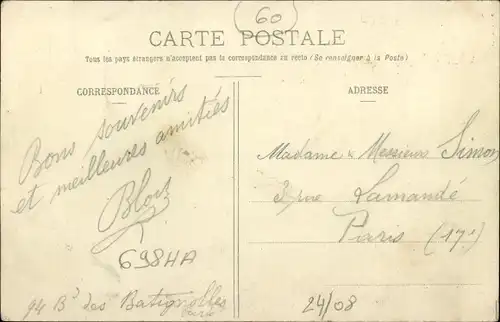 60
CARTE POSTALE
Tous les pays étrangers n'acceptent pas la correspondance au recto (Se renseigner à la Poste)
CORRESPONDANCE
ADRESSE
Bons souvenirs
et meilleures amitiés
698HA
94 Bd des Batignolles
Paris
Madame & Messieurs Simon
3, rue Lamandé
Paris (17e)
24/08